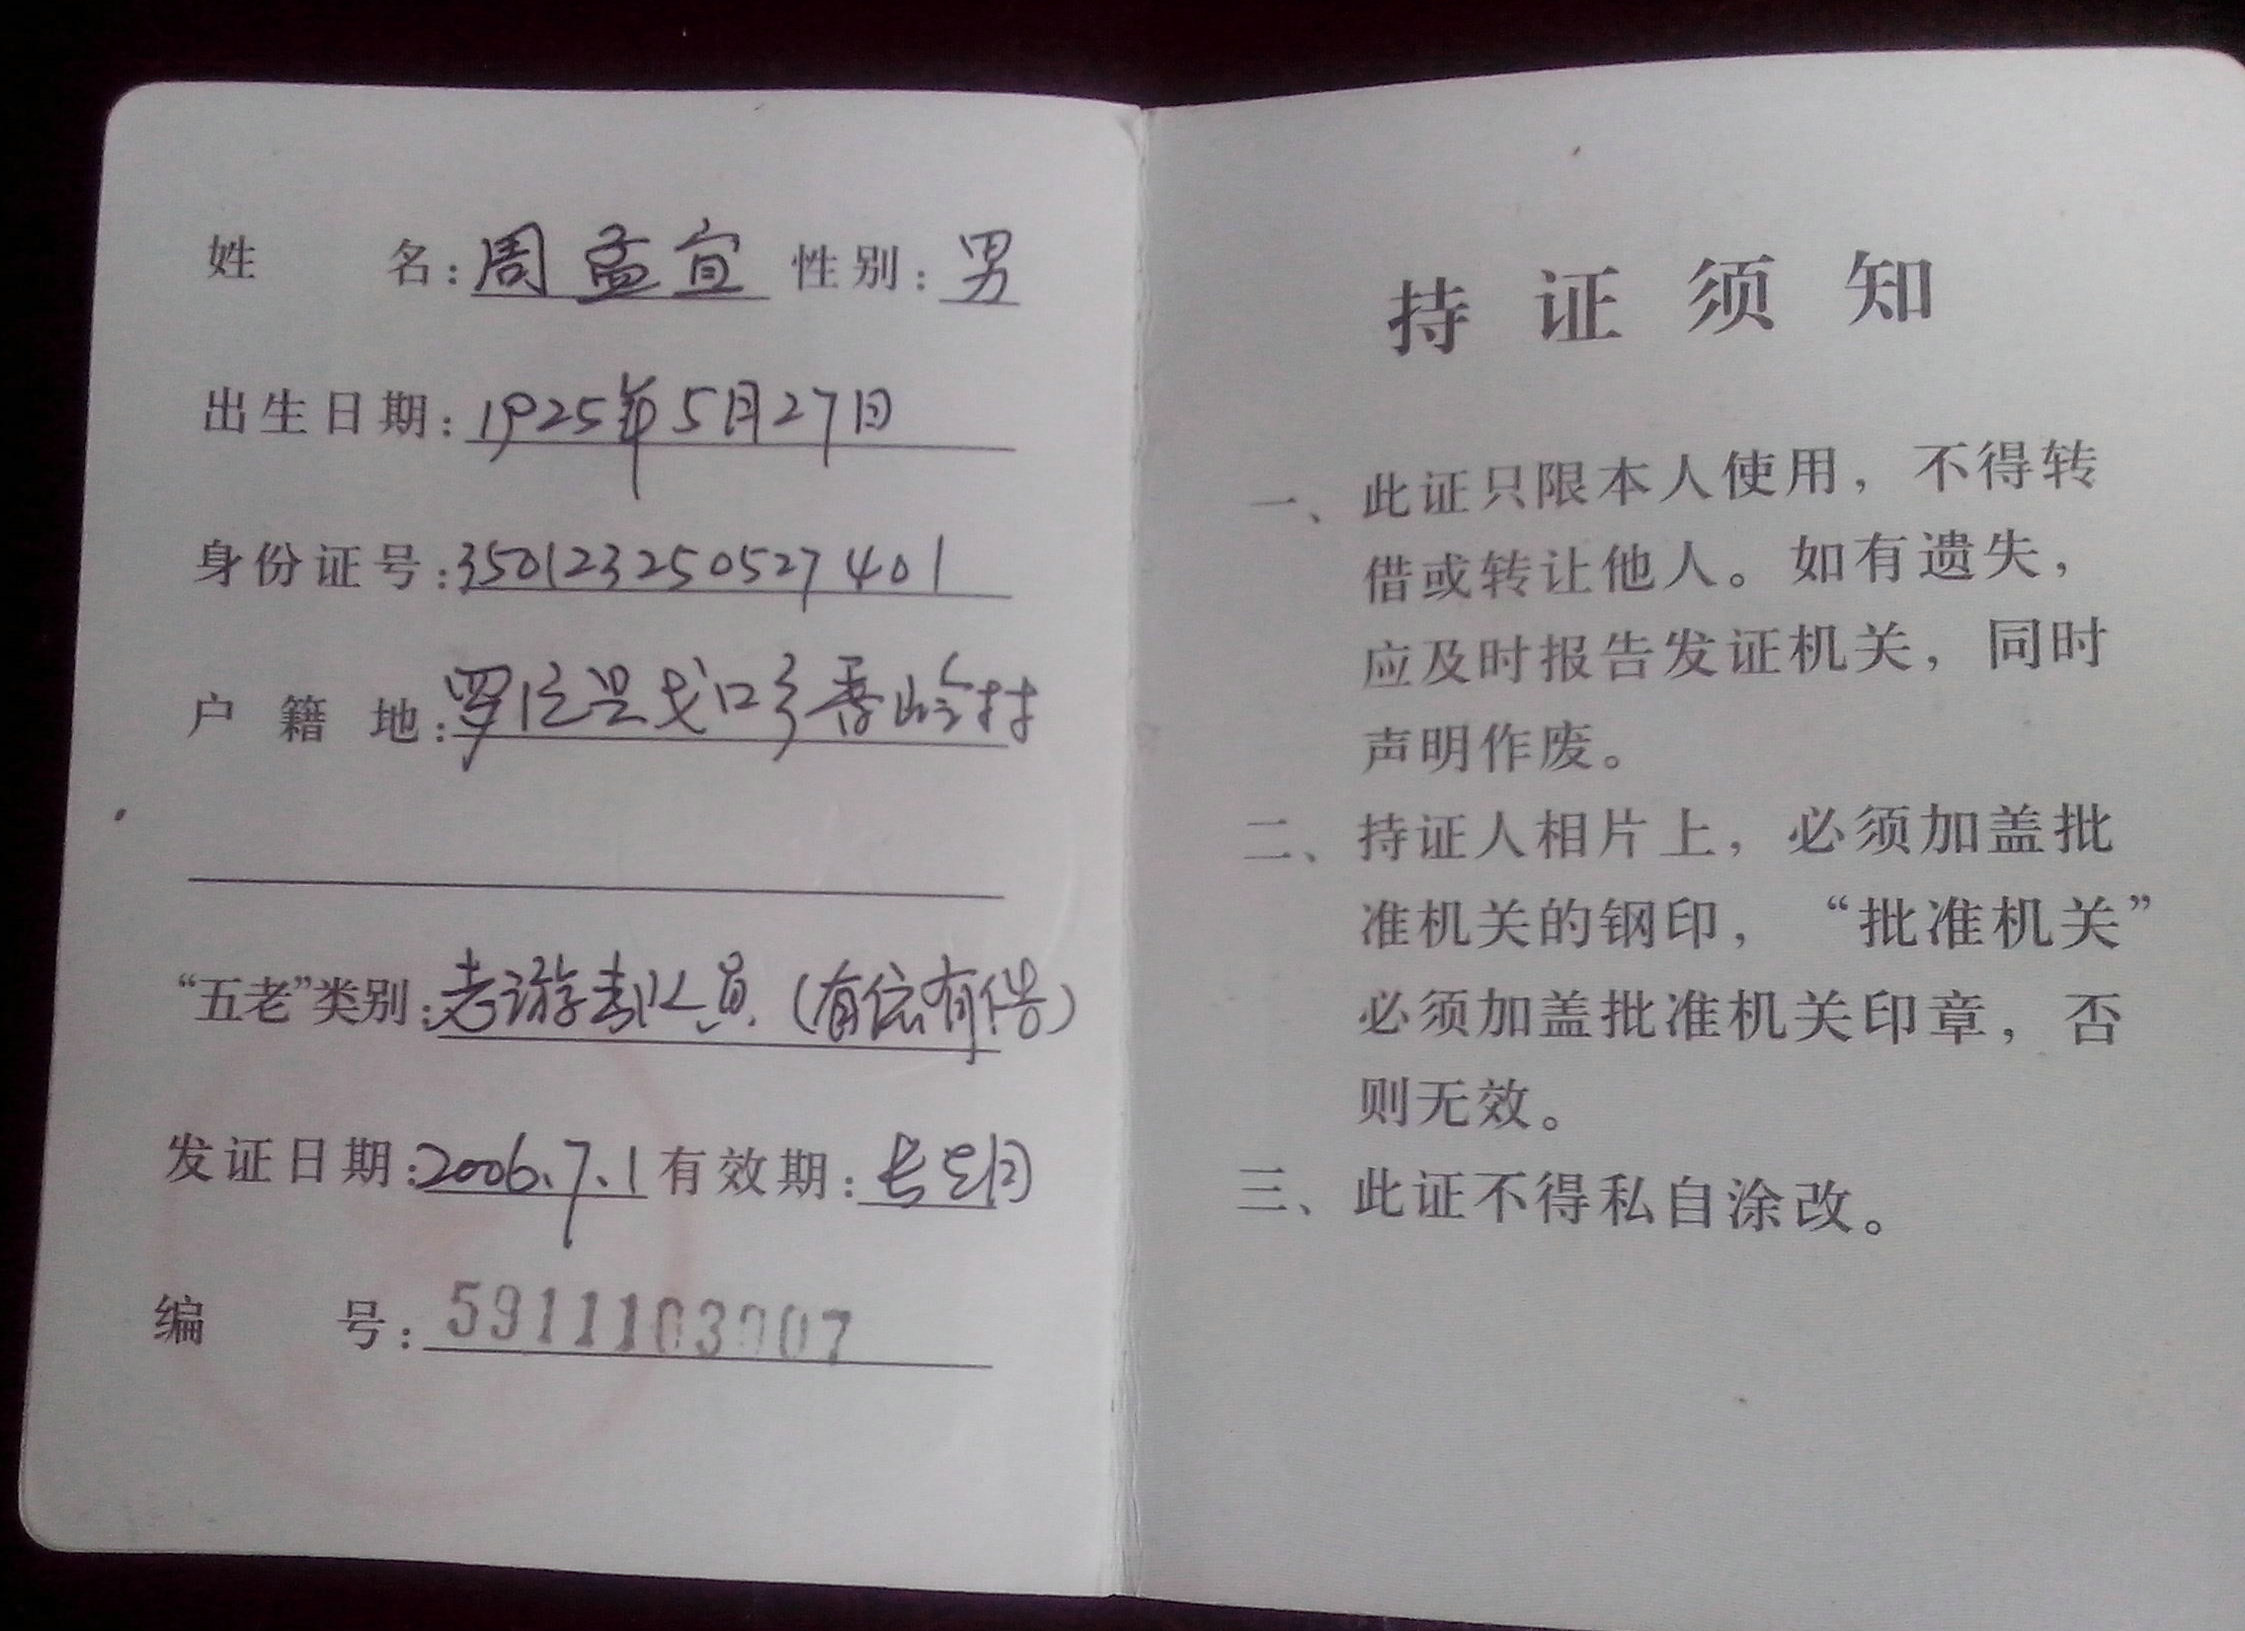 姓 名:周孟宜 性别:男
出生日期:1925年5月27日
身份证号:350123250527401
户 籍 地:罗源县 口乡 岭村
“五老”类别:老游击队员(有 有 )
发证日期:2006.7.1 有效期:长期
编 号:5911103007
持证须知
一、此证只限本人使用,不得转
借或转让他人。如有遗失,
应及时报告发证机关,同时
声明作废。
二、持证人相片上,必须加盖批
准机关的钢印,“批准机关”
必须加盖批准机关印章,否
则无效。
三、此证不得私自涂改。